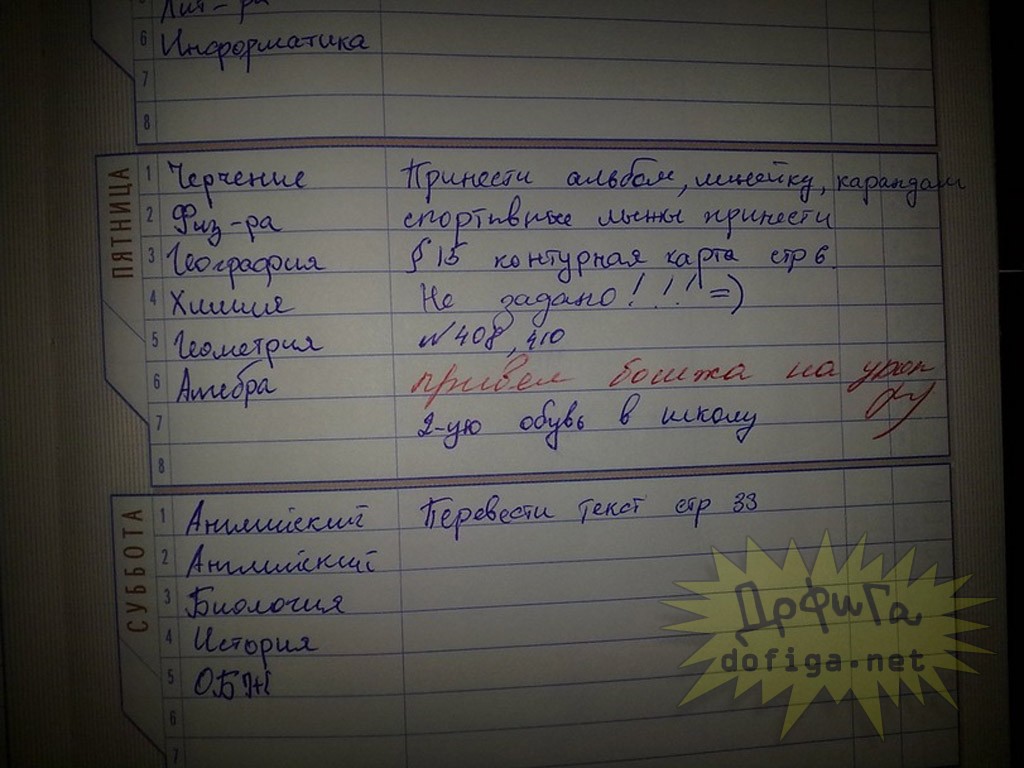 Лит-ра
6 Информатика
7
8
ПЯТНИЦА
1 Черчение Принести альбом, линейку, карандаш
2 Физ-ра спортивные лыжи принести
3 География § 15 контурная карта стр 6
4 Химия Не задано! ! ! =)
5 Геометрия №408, 410
6 Алгебра привел бомжа на урок
7 2-ую обувь в школу
8
СУББОТА
1 Английский Перевести текст стр 33
2 Английский
3 Биология
4 История
5 ОБЖ
6
7
ДофиГа
dofiga.net